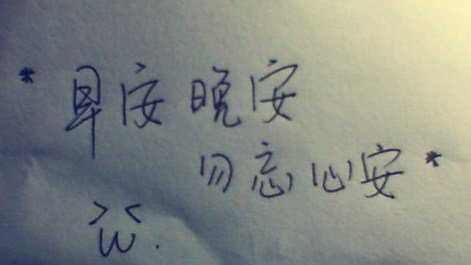 *早安 晚安
勿忘心安*
>w<.